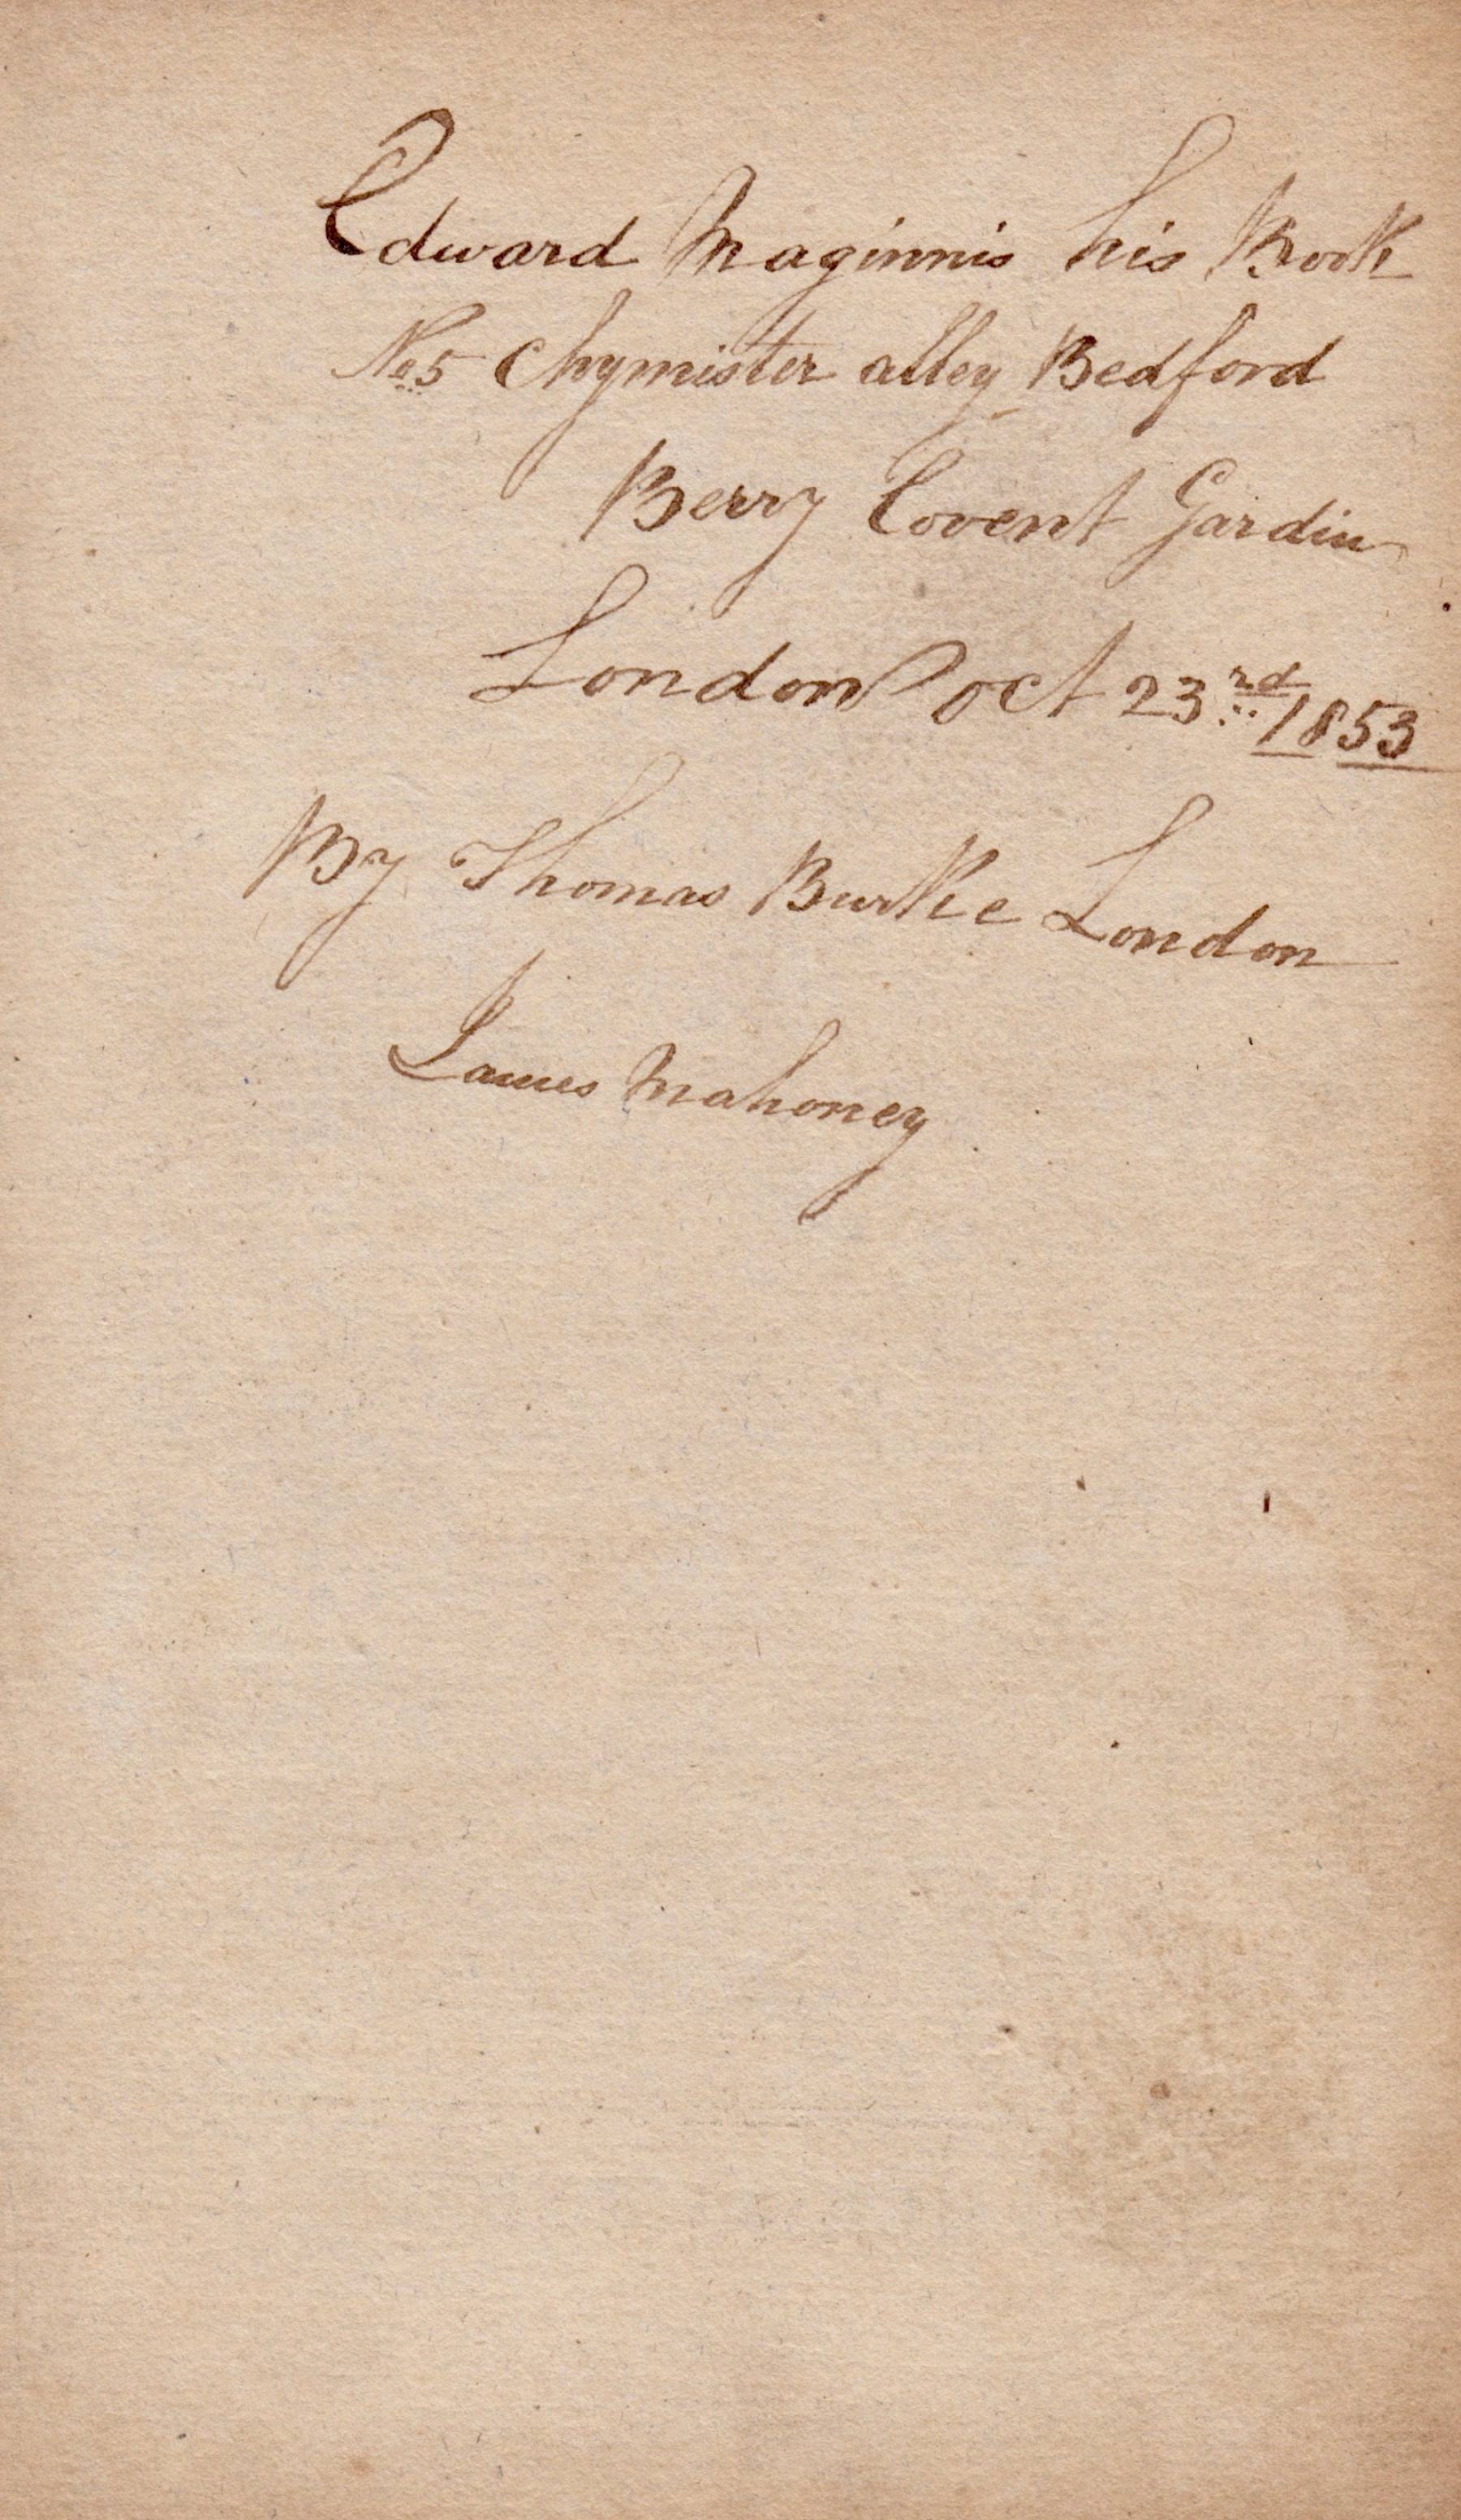 Edward Maginnis his Book
No. 5 Chymister alley Bedford
Berry Covent Gardin
London Oct 23rd 1853
By Thomas Burke London
James Mahoney